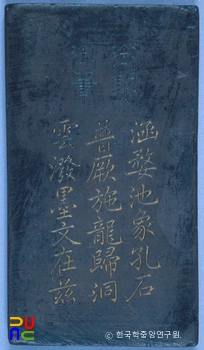 涵婺池象孔石
普厥施龍歸洞
雲潑墨文在茲
ⓒ 한국학중앙연구원